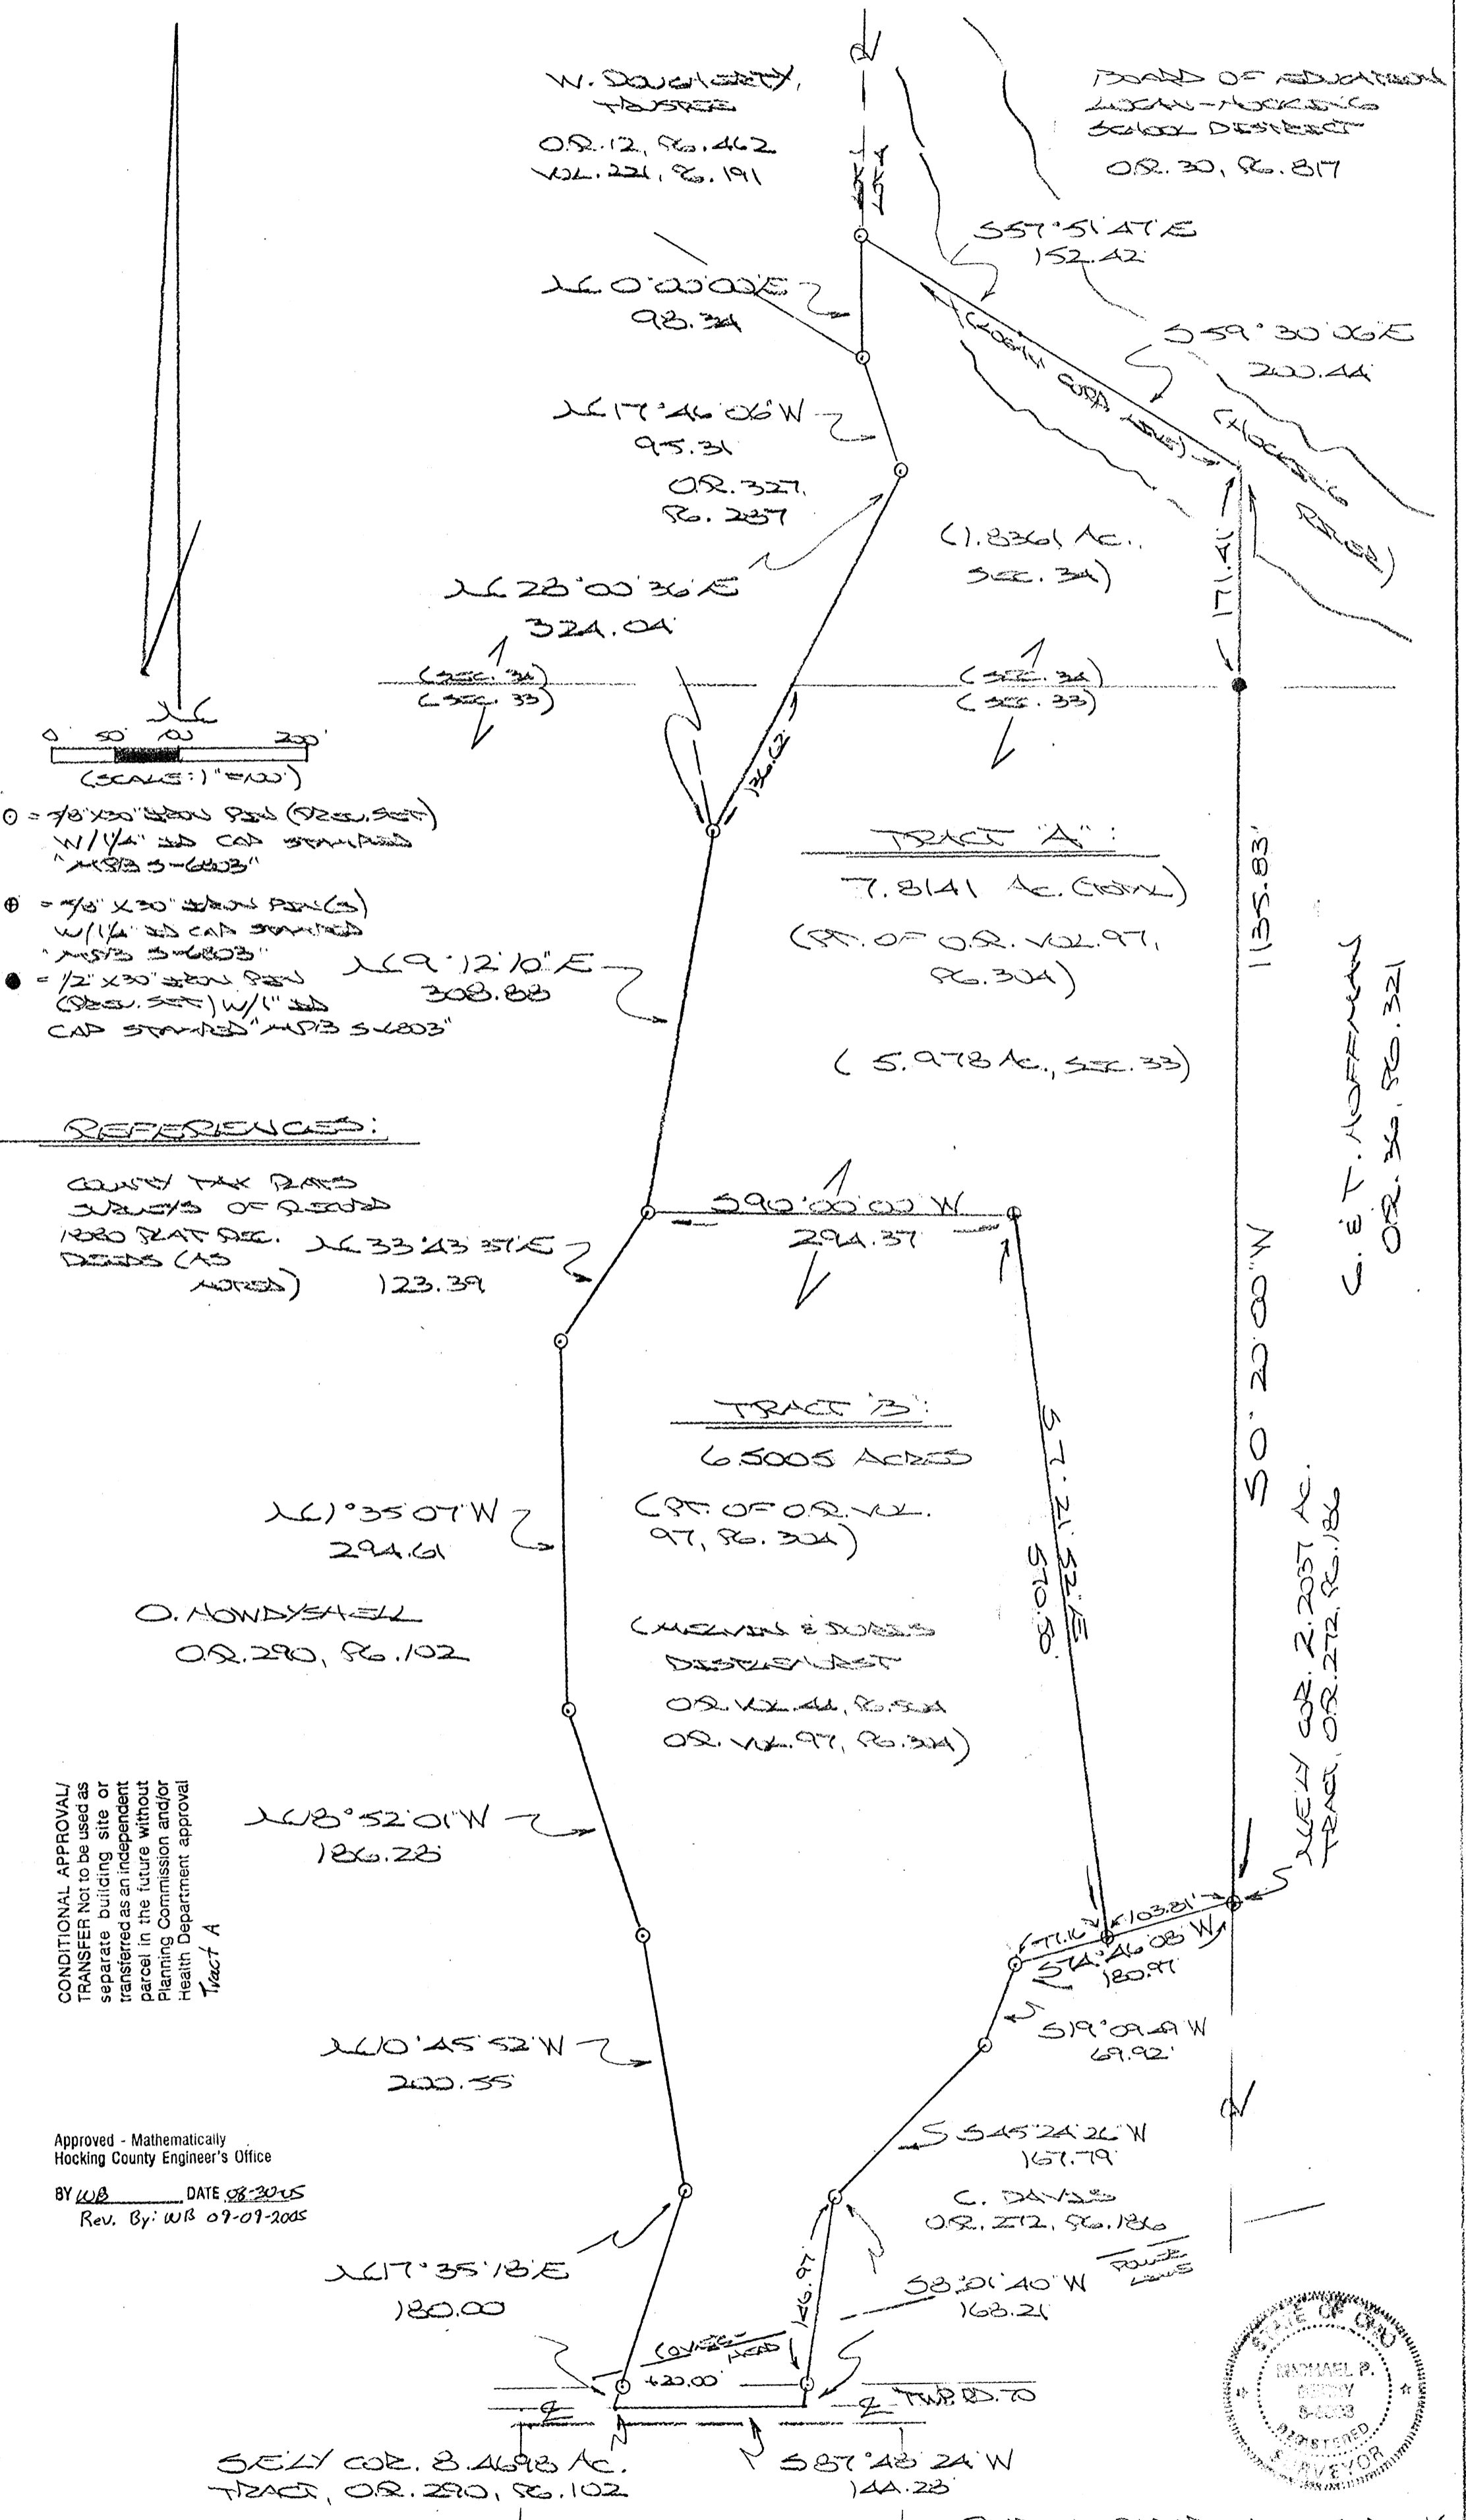 W. DOUGHERTY,
TRUSTEE
O.R. 12, PG. 462
VOL. 221, PG. 191
BOARD OF EDUCATION
LOGAN-HOCKING
SCHOOL DISTRICT
O.R. 30, PG. 817
S57°51'47"E
152.42'
N 0°00'00"E
98.34'
S59°30'06"E
200.44'
(HOCKING
RIVER)
N17°46'06"W
95.31'
O.R. 327,
PG. 237
(1.8361 AC.,
SEC. 34)
171.41'
N 28°00'36"E
324.04'
(SEC. 34)
(SEC. 33)
(SEC. 34)
(SEC. 33)
136.62'
N
0 50' 100' 200'
(SCALE: 1"=100')
O = 5/8"X30" IRON PIN (PREV. SET)
W/1¼" ID CAP STAMPED
"MPB S-6803"
⊕ = 5/8" X 30" IRON PIN(S)
W/1¼" ID CAP STAMPED
"MPB S-6803"
● = 1/2" X30" IRON PIN
(PREV. SET) W/1" ID
CAP STAMPED "MPB S-6803"
TRACT "A":
7.8141 AC. (TOTAL)
(PT. OF O.R. VOL. 97,
PG. 304)
(5.978 AC., SEC. 33)
1135.83'
S 0° 20' 00" W
C. & T. HOFFMAN
O.R. 36, PG. 321
N 9°12'10"E
308.88
REFERENCES:
COUNTY TAX PLATS
SURVEYS OF RECORD
1980 PLAT REC.
DEEDS (AS
NOTED)
S90°00'00"W
294.37'
N 33°43'37"E
123.39
TRACT "B":
6.5005 ACRES
(PT. OF O.R. VOL.
97, PG. 304)
S 7° 21' 52" E
570.50'
N 1°35'07"W
294.61
O. HOWDYSHELL
O.R. 290, PG. 102
O.R. VOL. 97, PG. 304)
NE'LY COR. 2.2037 AC.
TRACT, O.R. 272, PG. 186
N18°52'01"W
186.28'
CONDITIONAL APPROVAL/
TRANSFER Not to be used as
separate building site or
transferred as an independent
parcel in the future without
Planning Commission and/or
Health Department approval
Tract A
77.16' 103.81'
S74°46'08"W
180.97'
S19°09'49"W
69.92'
N10°45'52"W
200.55'
S45°24'26"W
167.79'
Approved - Mathematically
Hocking County Engineer's Office
BY WB DATE 08-30-05
Rev. By: WB 09-09-2005
C. DAVIS
O.R. 272, PG. 186
N17°35'18"E
180.00
146.97'
S8°01'40"W
168.21'
20.00'
TWP. RD. 70
SE'LY COR. 8.4698 AC.
TRACT, O.R. 290, PG. 102
S87°48'24"W
144.28'
STATE OF OHIO
MICHAEL P.
BERRY
S-6803
REGISTERED
SURVEYOR